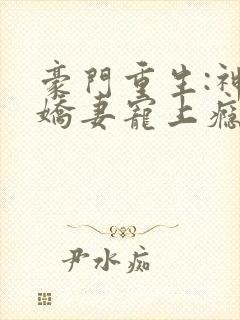 豪門重生:神
嬌妻寵上癮
尹水痴